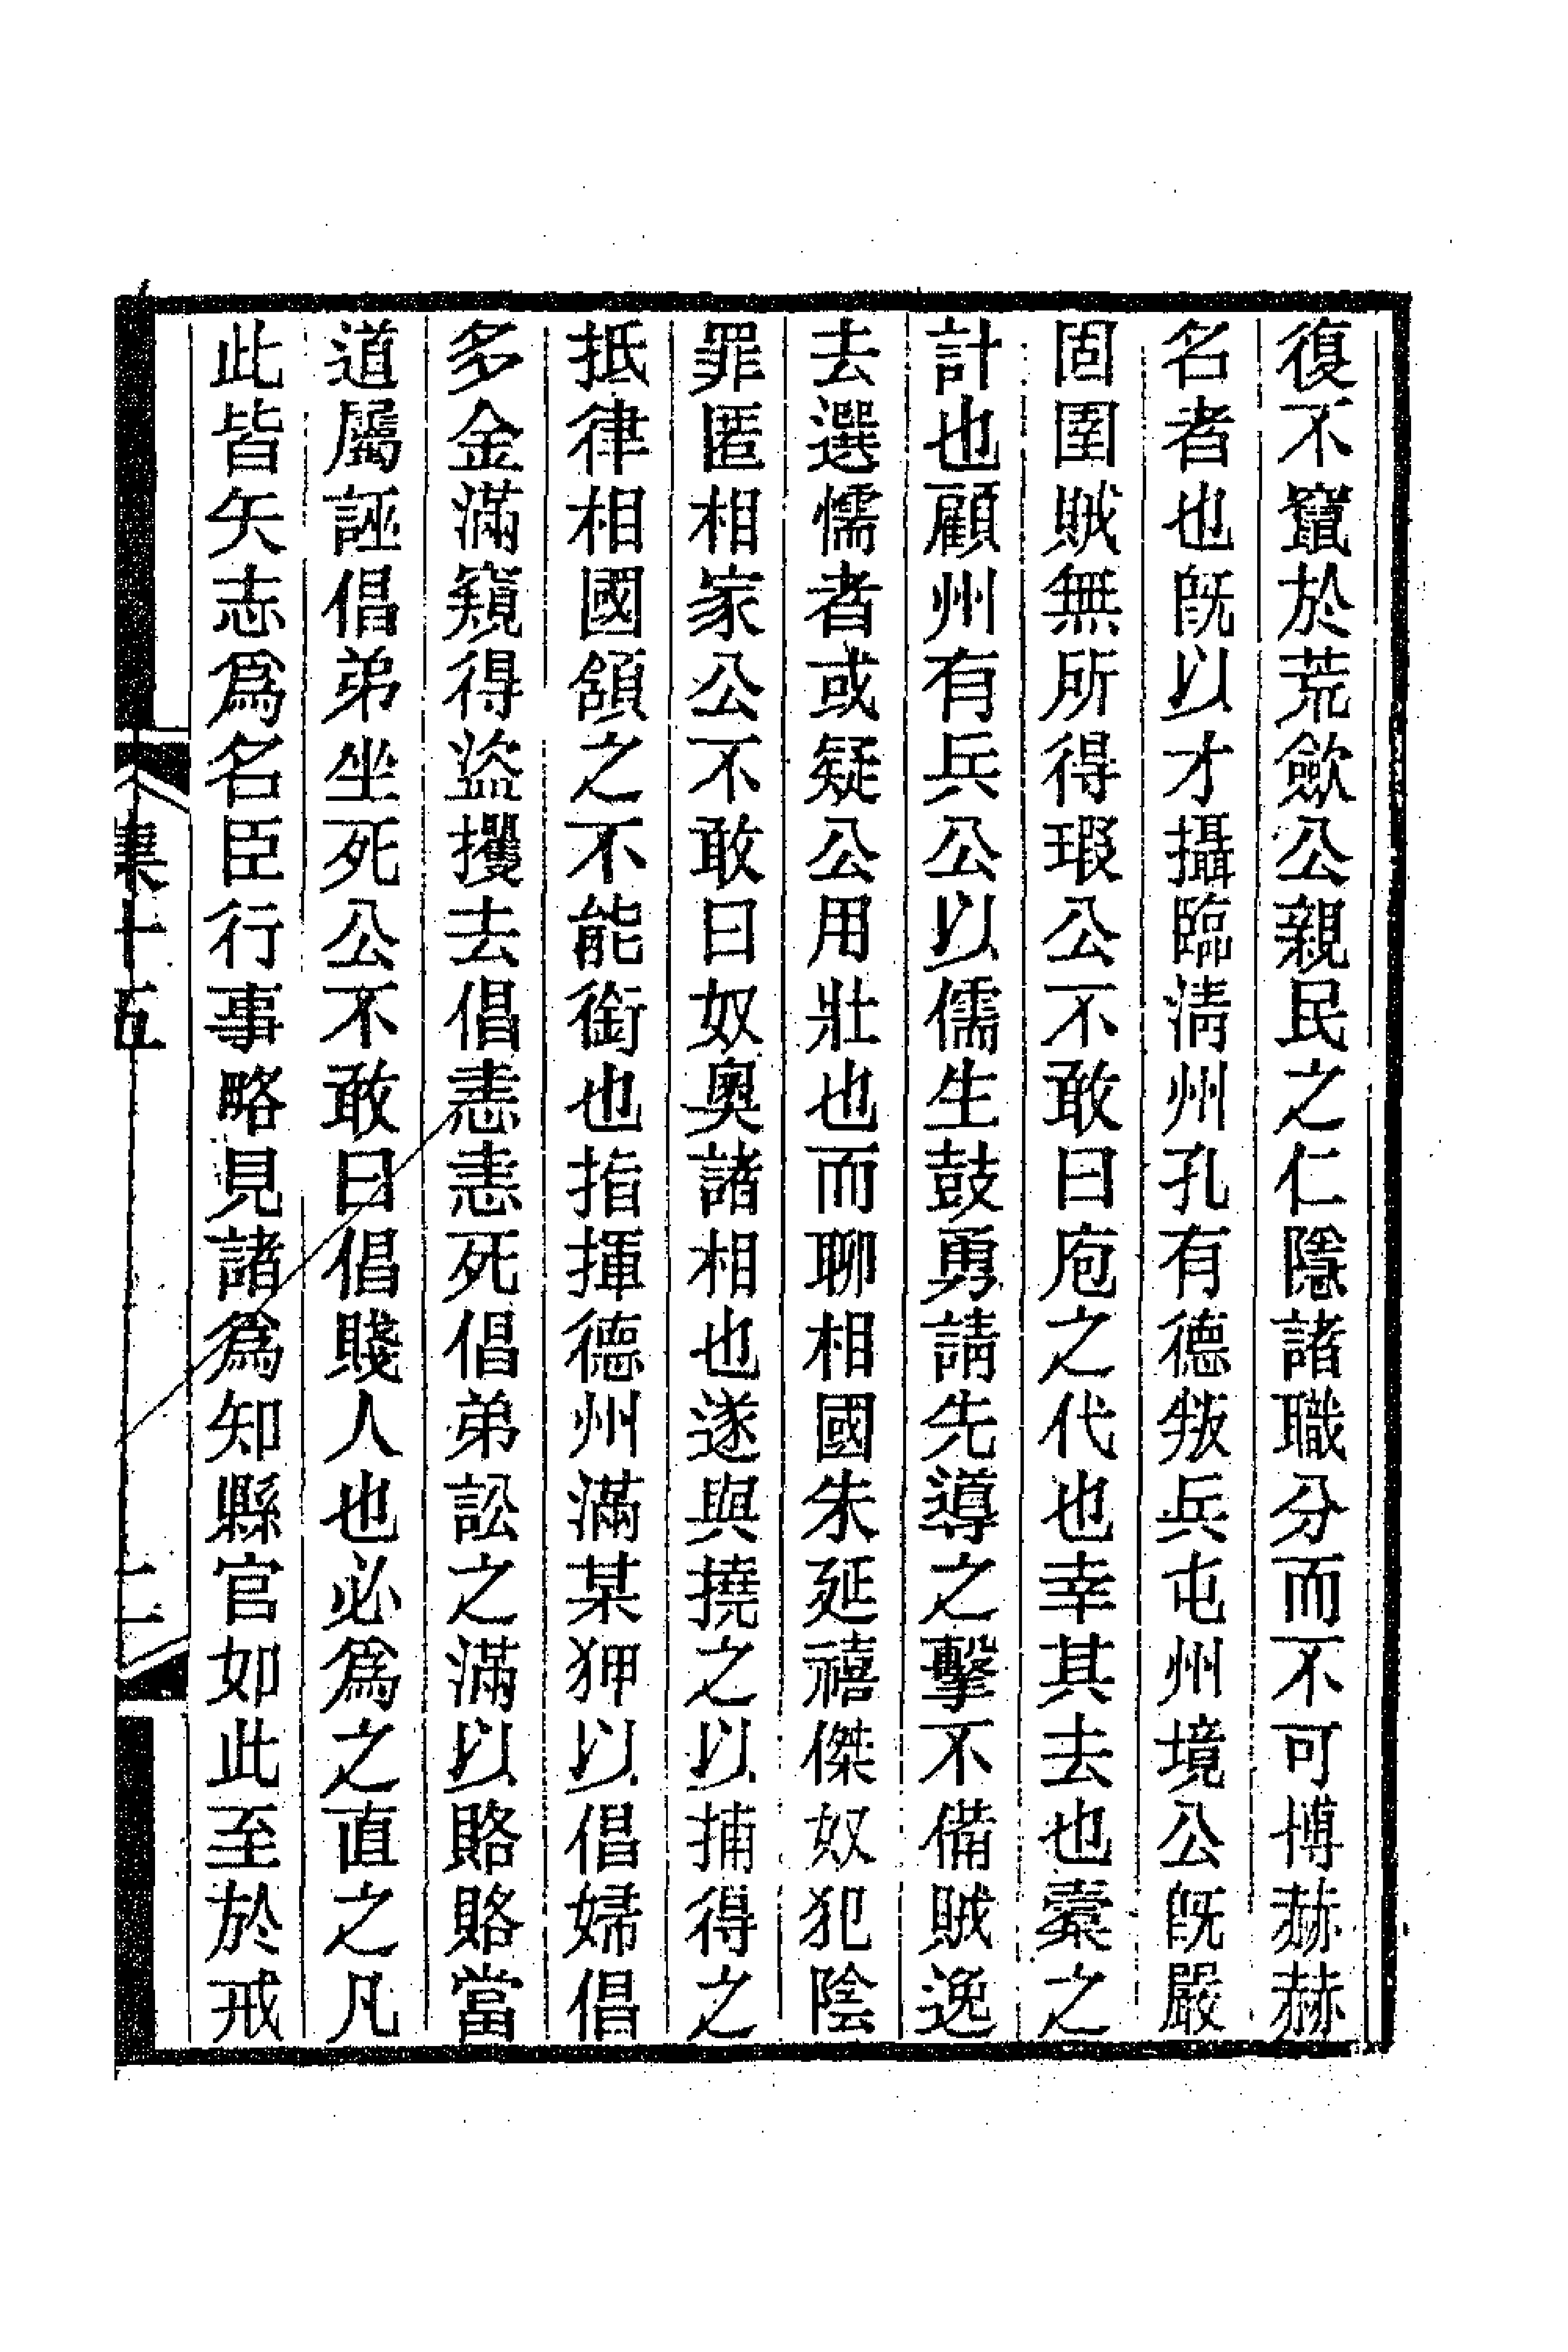 復不竄於荒歛公親民之仁隱諸職分而不可博赫赫
名者也旣以才攝臨淸州孔有德叛兵屯州境公旣嚴
固圉賊無所得瑕公不敢曰庖之代也幸其去也橐之
計也顧州有兵公以儒生鼓勇請先導之擊不備賊逸
去選懦者或疑公用壯也而聊相國朱延禧傑奴犯陰
罪匿相家公不敢曰奴奥諸相也遂與撓之以捕得之
抵律相國頟之不能銜也指揮德州滿某狎以倡婦倡
多金滿窺得盜攫去倡恚恚死倡弟訟之滿以賂賂當
道屬誣倡弟坐死公不敢曰倡賤人也必爲之直之凡
此皆矢志爲名臣行事略見諸爲知縣官如此至於戒
集十五
二